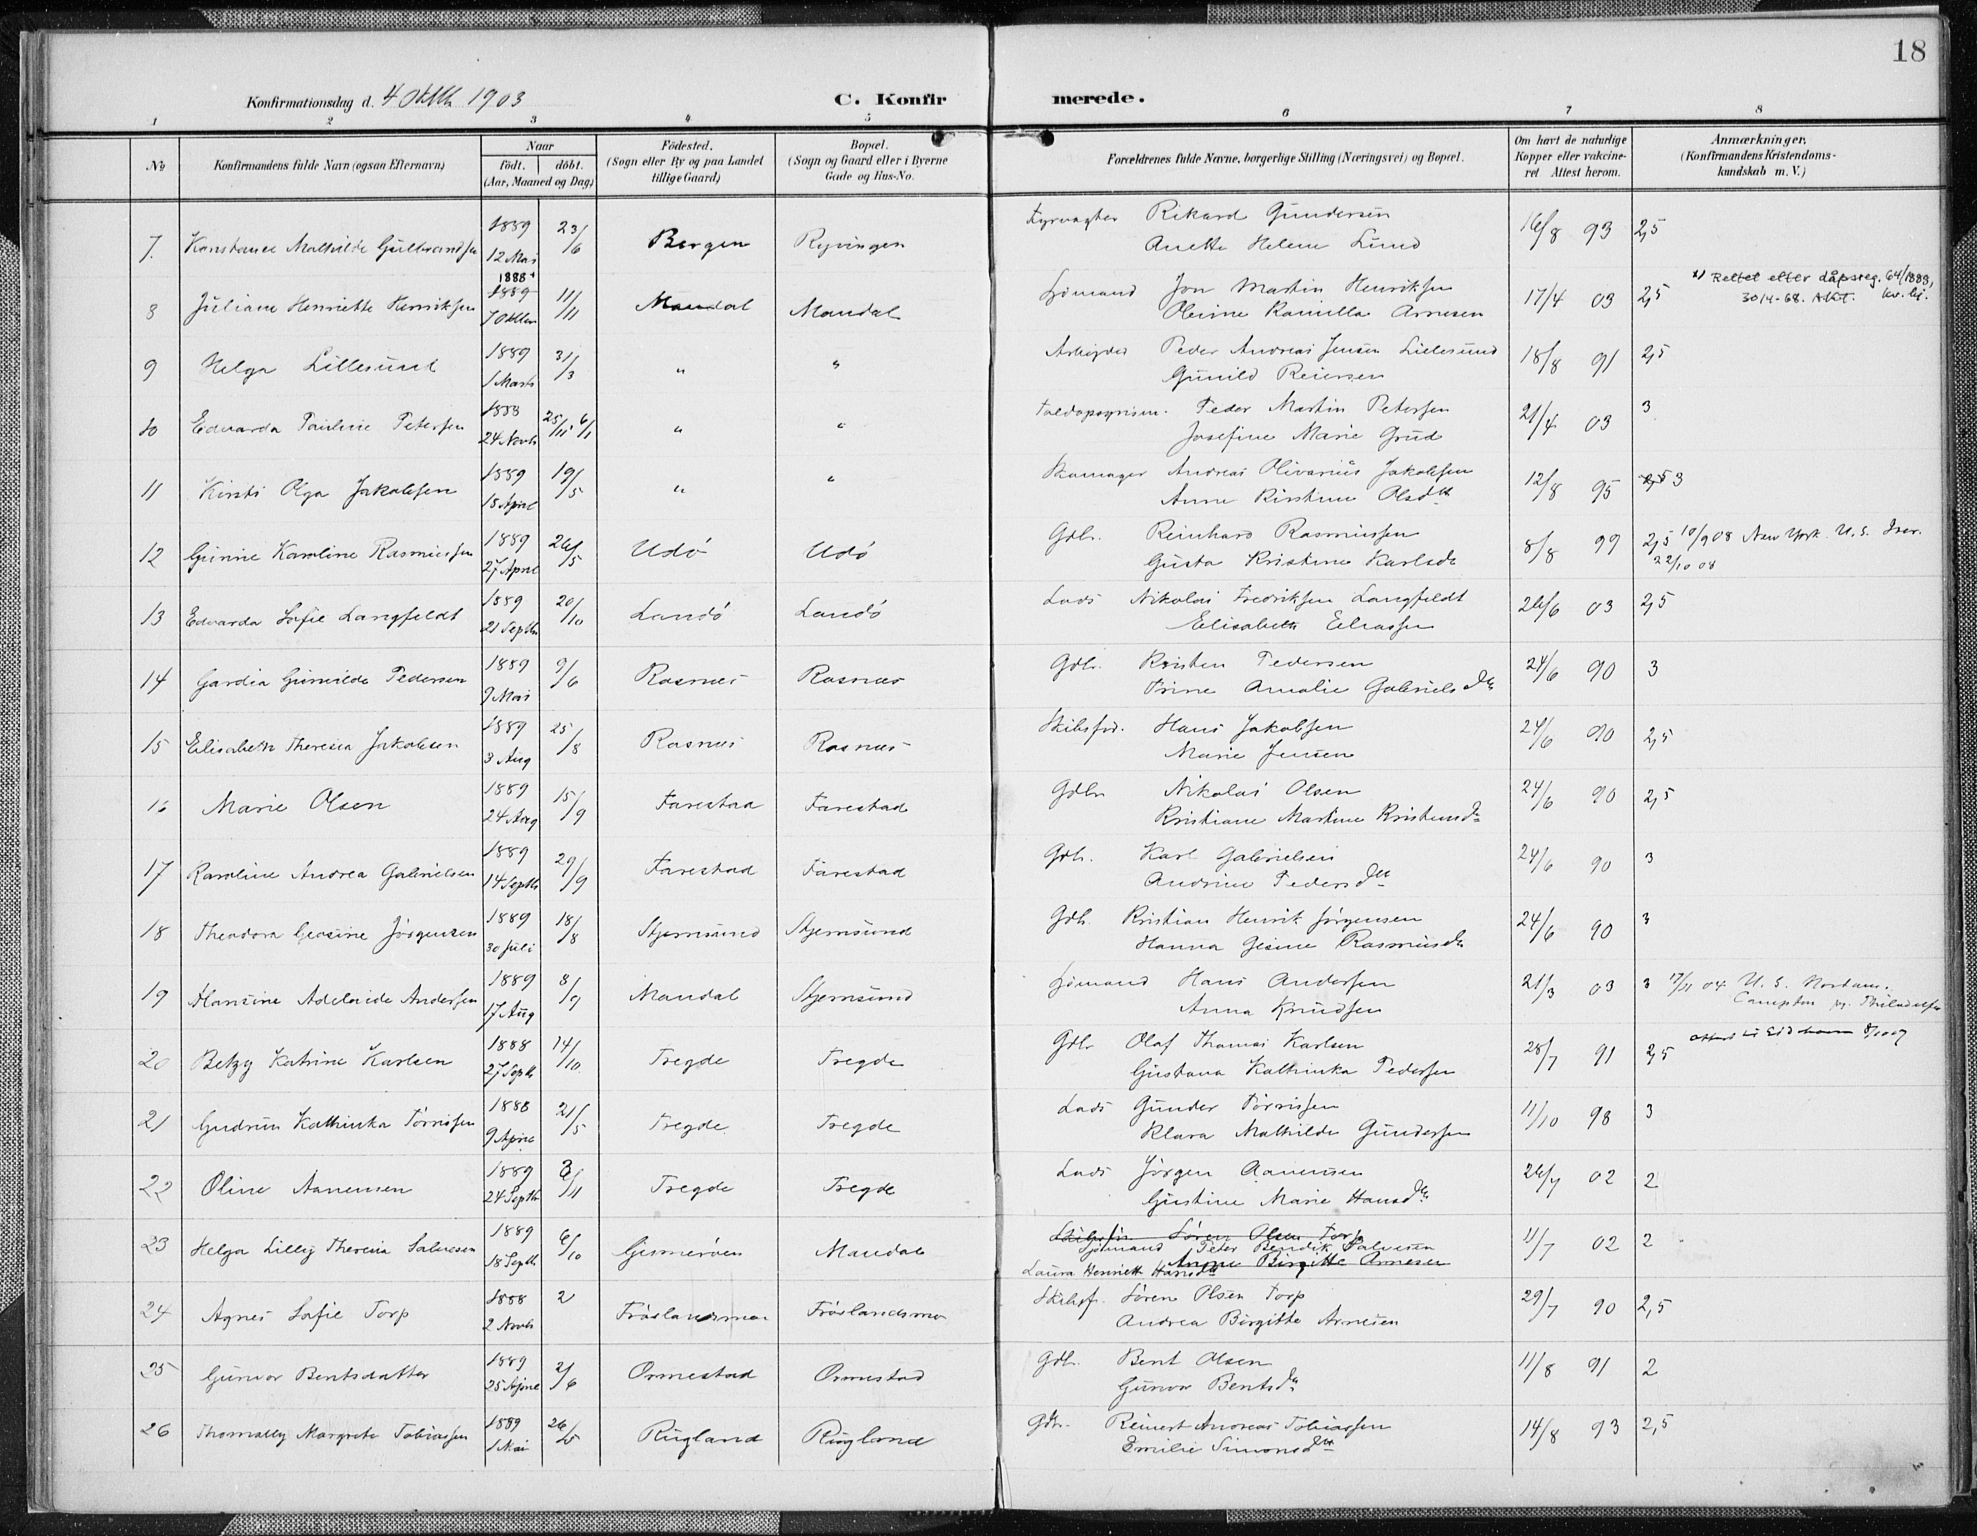 18
Konfirmationsdag d. 4 Oktbr 1903
C. Konfirmerede.
1 2 3 4 5 6 7 8
No
Konfirmandens fulde Navn (ogsaa Efternavn)
Naar
født. døbt.
(Aar, Maaned og Dag)
Födested.
(Sogn eller By og paa Landet
tillige Gaard)
Bopæl.
(Sogn og Gaard eller i Byerne
Gade og Hus-No.
Forældrenes fulde Navne, borgerlige Stilling (Næringsvei) og Bopæl.
Om havt de naturlige
Kopper eller vakcine-
ret Attest herom.
Anmærkninger,
(Konfirmandens Kristendoms-
kundskab m. V.)
7. Konstance Mathilde Gulbrandsen 1889 12 Mai 23/6 Bergen Ryvingen Fyrvagter Rikard Gundersen 16/8 93 2,5
Anette Helene Lund
8 Juliane Henriette Henriksen 1888 x) 1889 7 Oktbr 11/11 Mandal Mandal Sjømand Jon Martin Henriksen 17/4 03 2,5 x) Rettet etter dåpsreg. 64/1888,
Oleine Kamilla Arnesen 30/4-68. AkT. kv. bj.
9 Helga Lillesund 1889 1 Marts 31/3 " " Arbeider Peder Andreas Jensen Lillesund 18/8 91 2,5
Gunild Reiersen
10 Edvarda Pauline Petersen 1888 24 Novbr 25/11 6/1 " " Toldopsynsm. Peder Martin Petersen 21/4 03 3
Josefine Marie Grud
11 Kirsti Olga Jakobsen 1889 18 April 19/5 " " Skomager Andreas Olivarius Jakobsen 12/8 95 2,5 3
Anne Kirstine Olsdtr
12 Gunine Karoline Rasmussen 1889 27 April 26/5 Udö Udö Gdbr. Reinhard Rasmussen 8/8 99 2,5 10/9 08 New York. U. S.
Gusta Kristine Karlsdr 22/10 08
13 Edvarda Sofie Langfeldt 1889 21 Septbr 20/10 Landö Landö Lods Nikolai Fredriksen Langfeldt 26/6 03 2,5
Elisabeth Eliassen
14 Gardia Gunvilde Pedersen 1889 9 Mai 9/6 Rosnes Rosnes Gdbr. Kristen Pedersen 24/6 90 3
Trine Amalie Gabrielsdtr
15 Elisabeth Theresia Jakobsen 1889 3 Aug 25/8 Rosnes Rosnes Skibsfør. Hans Jakobsen 24/6 90 2,5
Marie Jensen
16 Marie Olsen 1889 24 Aug 15/9 Farestad Farestad Gdbr Nikolai Olsen 24/6 90 2,5
Kristiane Martine Kristensdr
17 Karoline Andrea Gabrielsen 1889 14 Septbr 29/9 Farestad Farestad Gdb. Karl Gabrielsen 24/6 90 3
Andrine Pedersdtr
18 Theodora Geosine Jörgensen 1889 30 Juli 18/8 Stjernsund Stjernsund Gdb. Kristian Henrik Jörgensen 24/6 90 3
Hanna Gesine Rasmusdr
19 Hansine Adelaide Andersen 1889 17 Aug 8/9 Mandal Stjernsund Sjömand Hans Andersen 21/3 03 3 04 U. S. Nordam.
Anna Knudsen Philadelfia
20 Betzy Katrine Karlsen 1888 27 Septbr 14/10 Tregde Tregde Gdbr Olaf Thomas Karlsen 28/7 91 2,5
Gustava Kathinka Pedersen
21 Gudrun Kathinka Törrisen 1888 9 April 21/5 Tregde Tregde Lods Gunder Törrisen 11/10 98 3
Klara Mathilde Gundersen
22 Oline Aanensen 1889 24 Septbr 3/11 Tregde Tregde Lods Jörgen Aanensen 26/7 02 2
Gustine Marie Hansdtr
23 Helga Lilly Theresia Salvesen 1889 18 Septbr 6/10 Gismeröen Mandal Skibsför Sören Olsen Torp 11/7 02 2
Sjömand Peter Bendik Salvesen
Birgitte Arnesen
Laura Henriette Hansdtr
24 Agnes Sofie Torp 1888 2 Novbr 2 Fröslandsmoa Fröslandsmo Skibsf. Sören Olsen Torp 29/7 90 2,5
Andrea Birgitte Arnesen
25 Gunvor Bentsdatter 1889 25 April 2/6 Ormestad Ormestad Gdb. Bent Olsen 11/8 91 2
Gunvor Bentsdr
26 Thomally Margrete Tobiassen 1889 1 Mai 26/5 Rugland Rugland Gdbr. Reinert Andreas Tobiassen 14/8 93 2,5
Emilie Simonsdtr